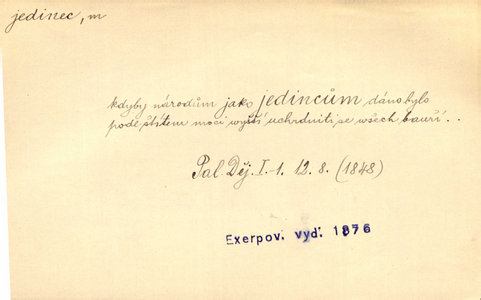 jedinec, m
kdyby národům jako jedincům dáno bylo
pode štítem moci wyšší uchrdniti se wšech bauří . .
Pal. Děj. I.-1. 12. 8. (1848)
Exerpov. vyd. 1876